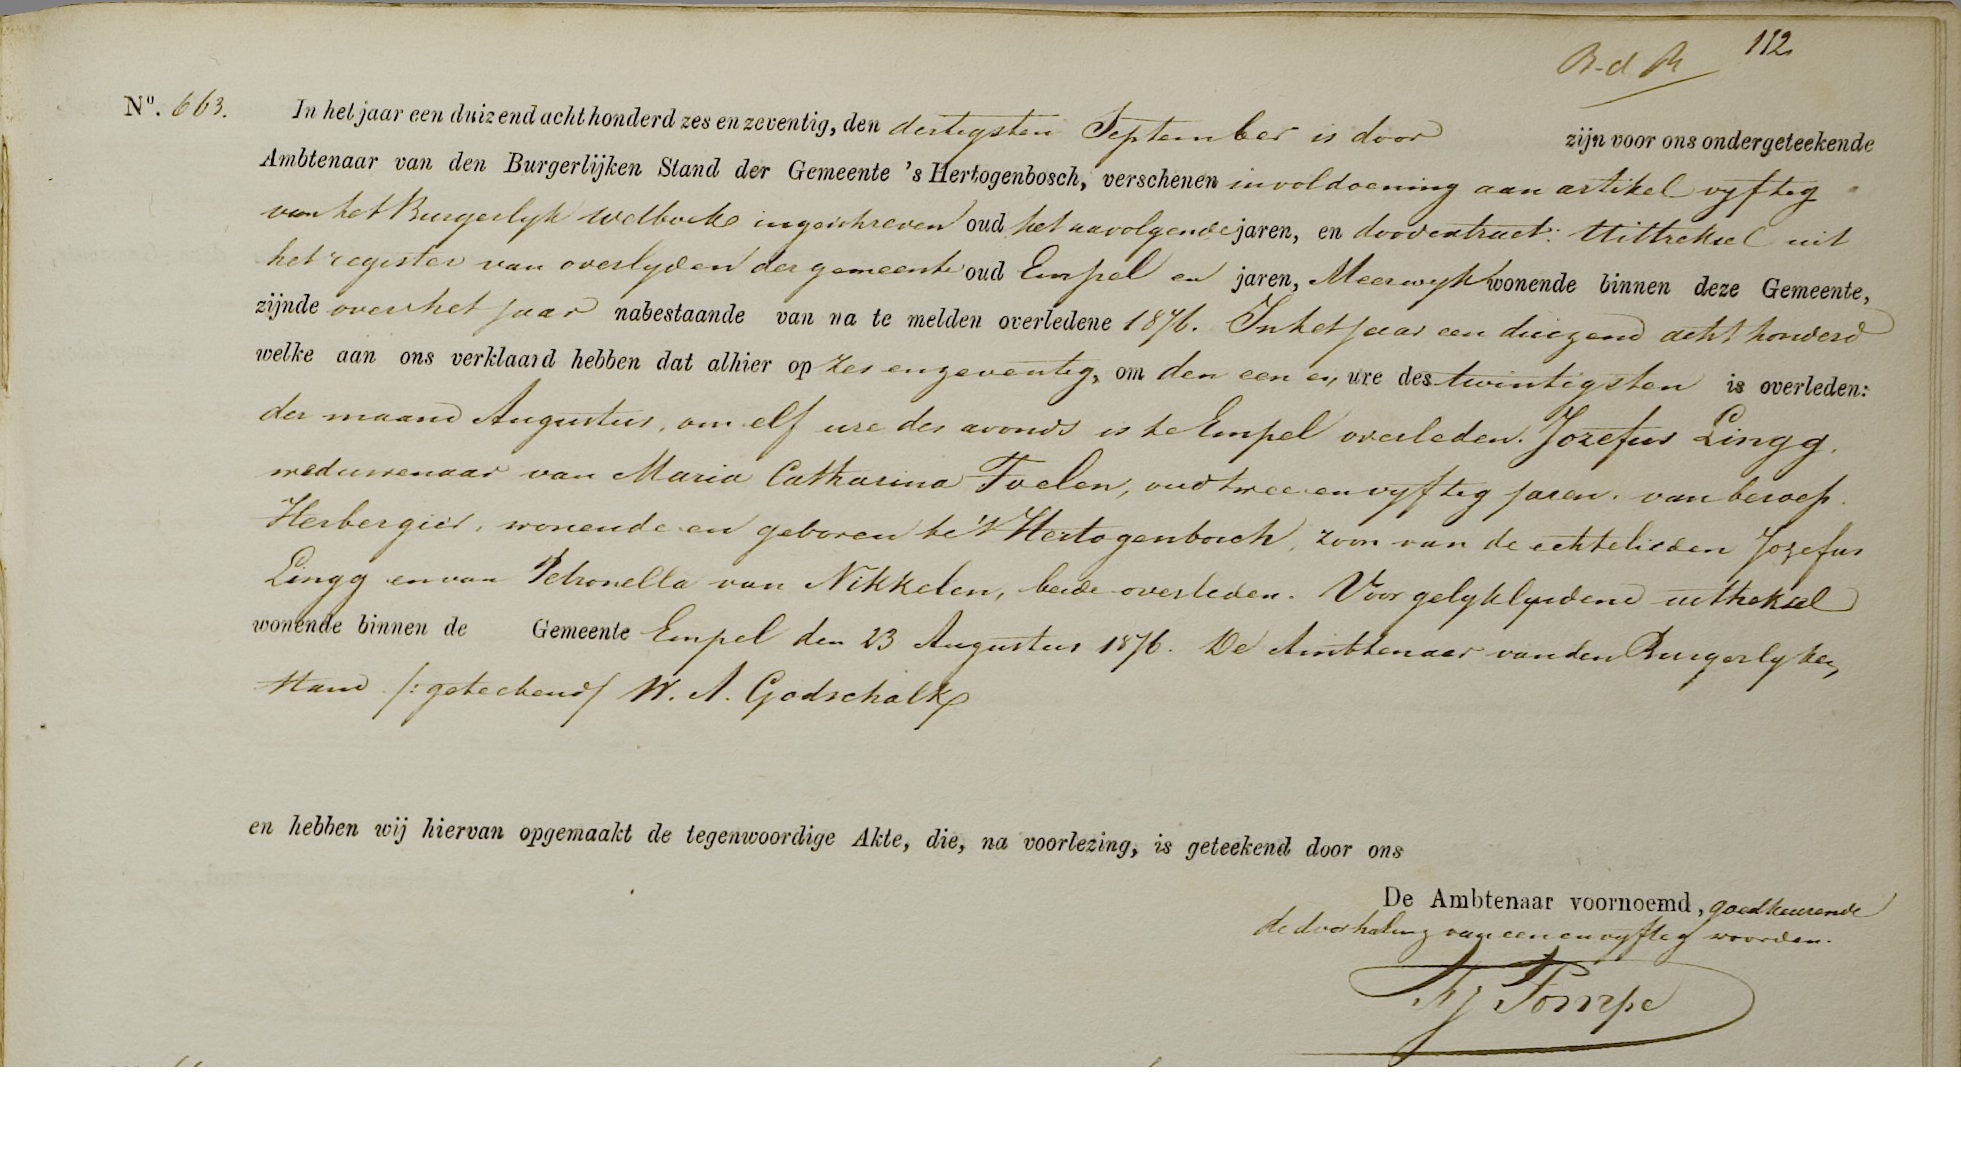 112
B. d R
Nº. 663. In het jaar een duizend acht honderd zes en zeventig, den dertigsten September is door zijn voor ons ondergeteekende
Ambtenaar van den Burgerlijken Stand der Gemeente 's Hertogenbosch, verschenen in voldoening aan artikel vyftig
van het Burgerlyk Wetboek ingeschreven oud het navolgende jaren, en doodextract: Uittreksel uit
het register van overlyden der gemeente oud Empel en jaren, Meerwyk wonende binnen deze Gemeente,
zijnde over het jaar nabestaande van na te melden overledene 1876. In het jaar een duizend acht honderd
welke aan ons verklaard hebben dat alhier op zes en zeventig, om den een en ure des twintigsten is overleden:
der maand Augustus, om elf ure des avonds is te Empel overleden. Jozefus Lingg,
weduwenaar van Maria Catharina Toelen, oud twee en vyftig jaren, van beroep
Herbergier, wonende en geboren te 's Hertogenbosch, zoon van de echtelieden Jozefus
Lingg en van Petronella van Nikkelen, beide overleden. Voor gelyklydend uittreksel
wonende binnen de Gemeente Empel den 23 Augustus 1876. De Ambtenaar van den Burgerlyken
stand /: geteekend/ W. A. Godschalk
en hebben wij hiervan opgemaakt de tegenwoordige Akte, die, na voorlezing, is geteekend door ons
De Ambtenaar voornoemd, goedkeurende
de doorhaling van een en vyftig woorden.
Pompe